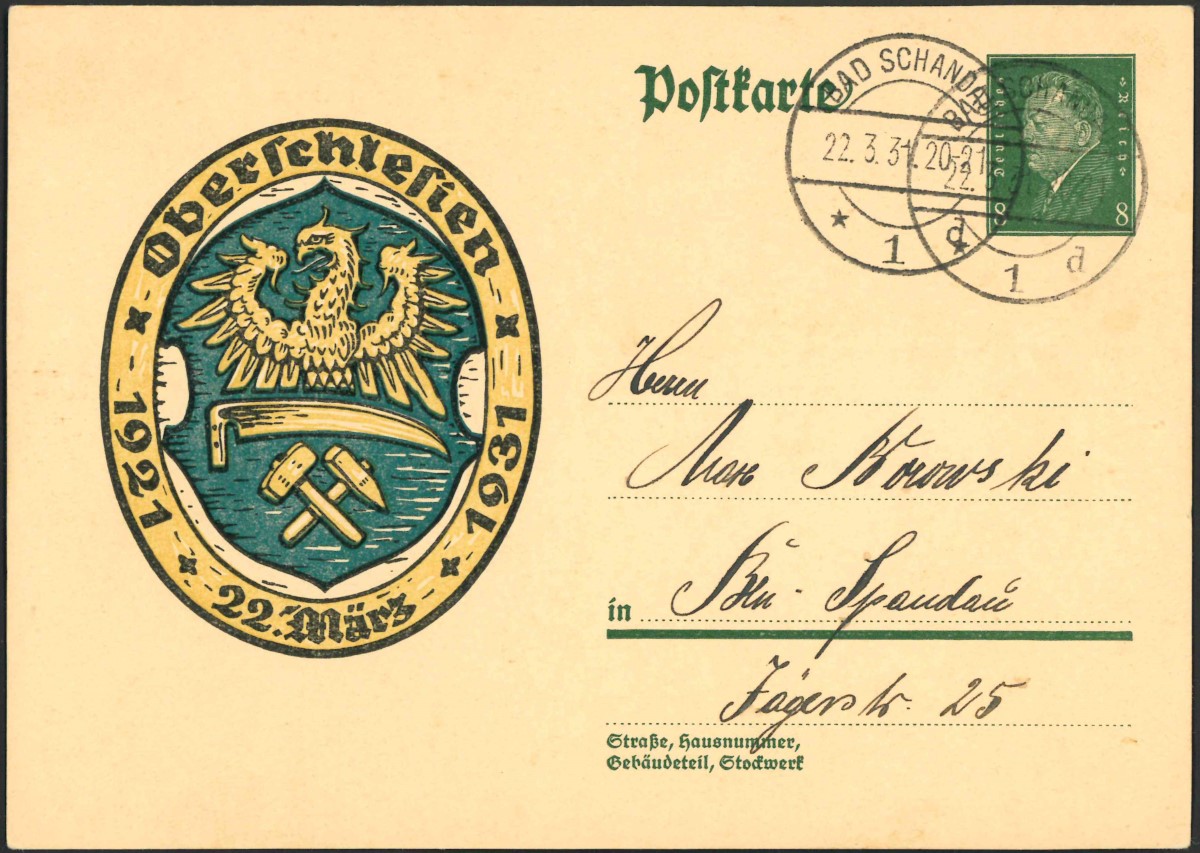 Postkarte
BAD SCHANDA
22.3.31.20-21
★ 1 d
BAD SCHAN
22.3.31
★ 1 d
Deutsches Reich
8 8
Oberschlesien
1921 1931
22. März
Herrn
Max Borowski
in Bln - Spandau
Jägerstr. 25
Straße, Hausnummer,
Gebäudeteil, Stockwerk